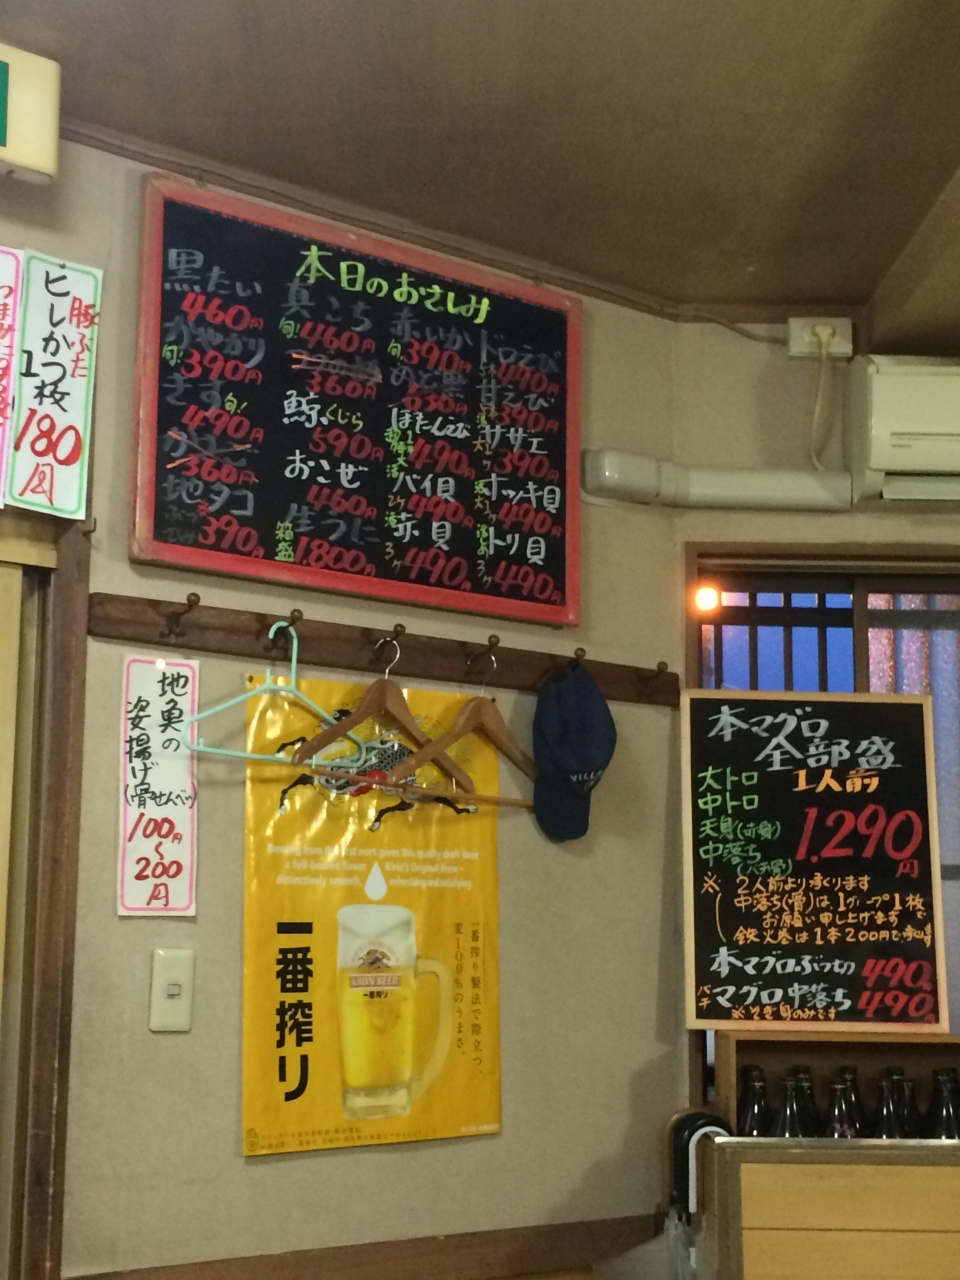 豚ぶた
ヒレかつ
1枚
180
円
本日のおさしみ
黒たい
460円
かやかり
旬!
390円
きす
旬!
490円
360円
地タコ
390円
真こち
旬!
460円
360円
鯨くじら
590円
おこぜ
460円
生うに
箱盛
1.800円
赤いか
旬
390円
のど黒
630円
ほたてえび
490円
バイ貝
2ケ
490円
赤貝
3ケ
490円
ドロえび
490円
甘えび
390円
サザエ
大1ケ
390円
ホッキ貝
大1ケ
490円
トリ貝
3ケ
490円
地魚の
姿揚げ
(骨せんべい)
100円
〜
200
円
本マグロ
全部盛
1人前
大トロ
中トロ
天身(赤身)
中落ち
(バチ骨)
1.290
円
※2人前より承ります
中落ち(骨)は、1グループ1枚で
お願い申し上げます
鉄火巻は1本200円で
本マグロぶつ切 490円
バチマグロ中落ち 490円
※そぎ身のみです
Kirin's Original Brew -
distinctively smooth, refreshing and satisfying.
KIRIN BEER
一番搾り
一番搾り
一番搾り製法で際立つ、
麦100%のうまさ。